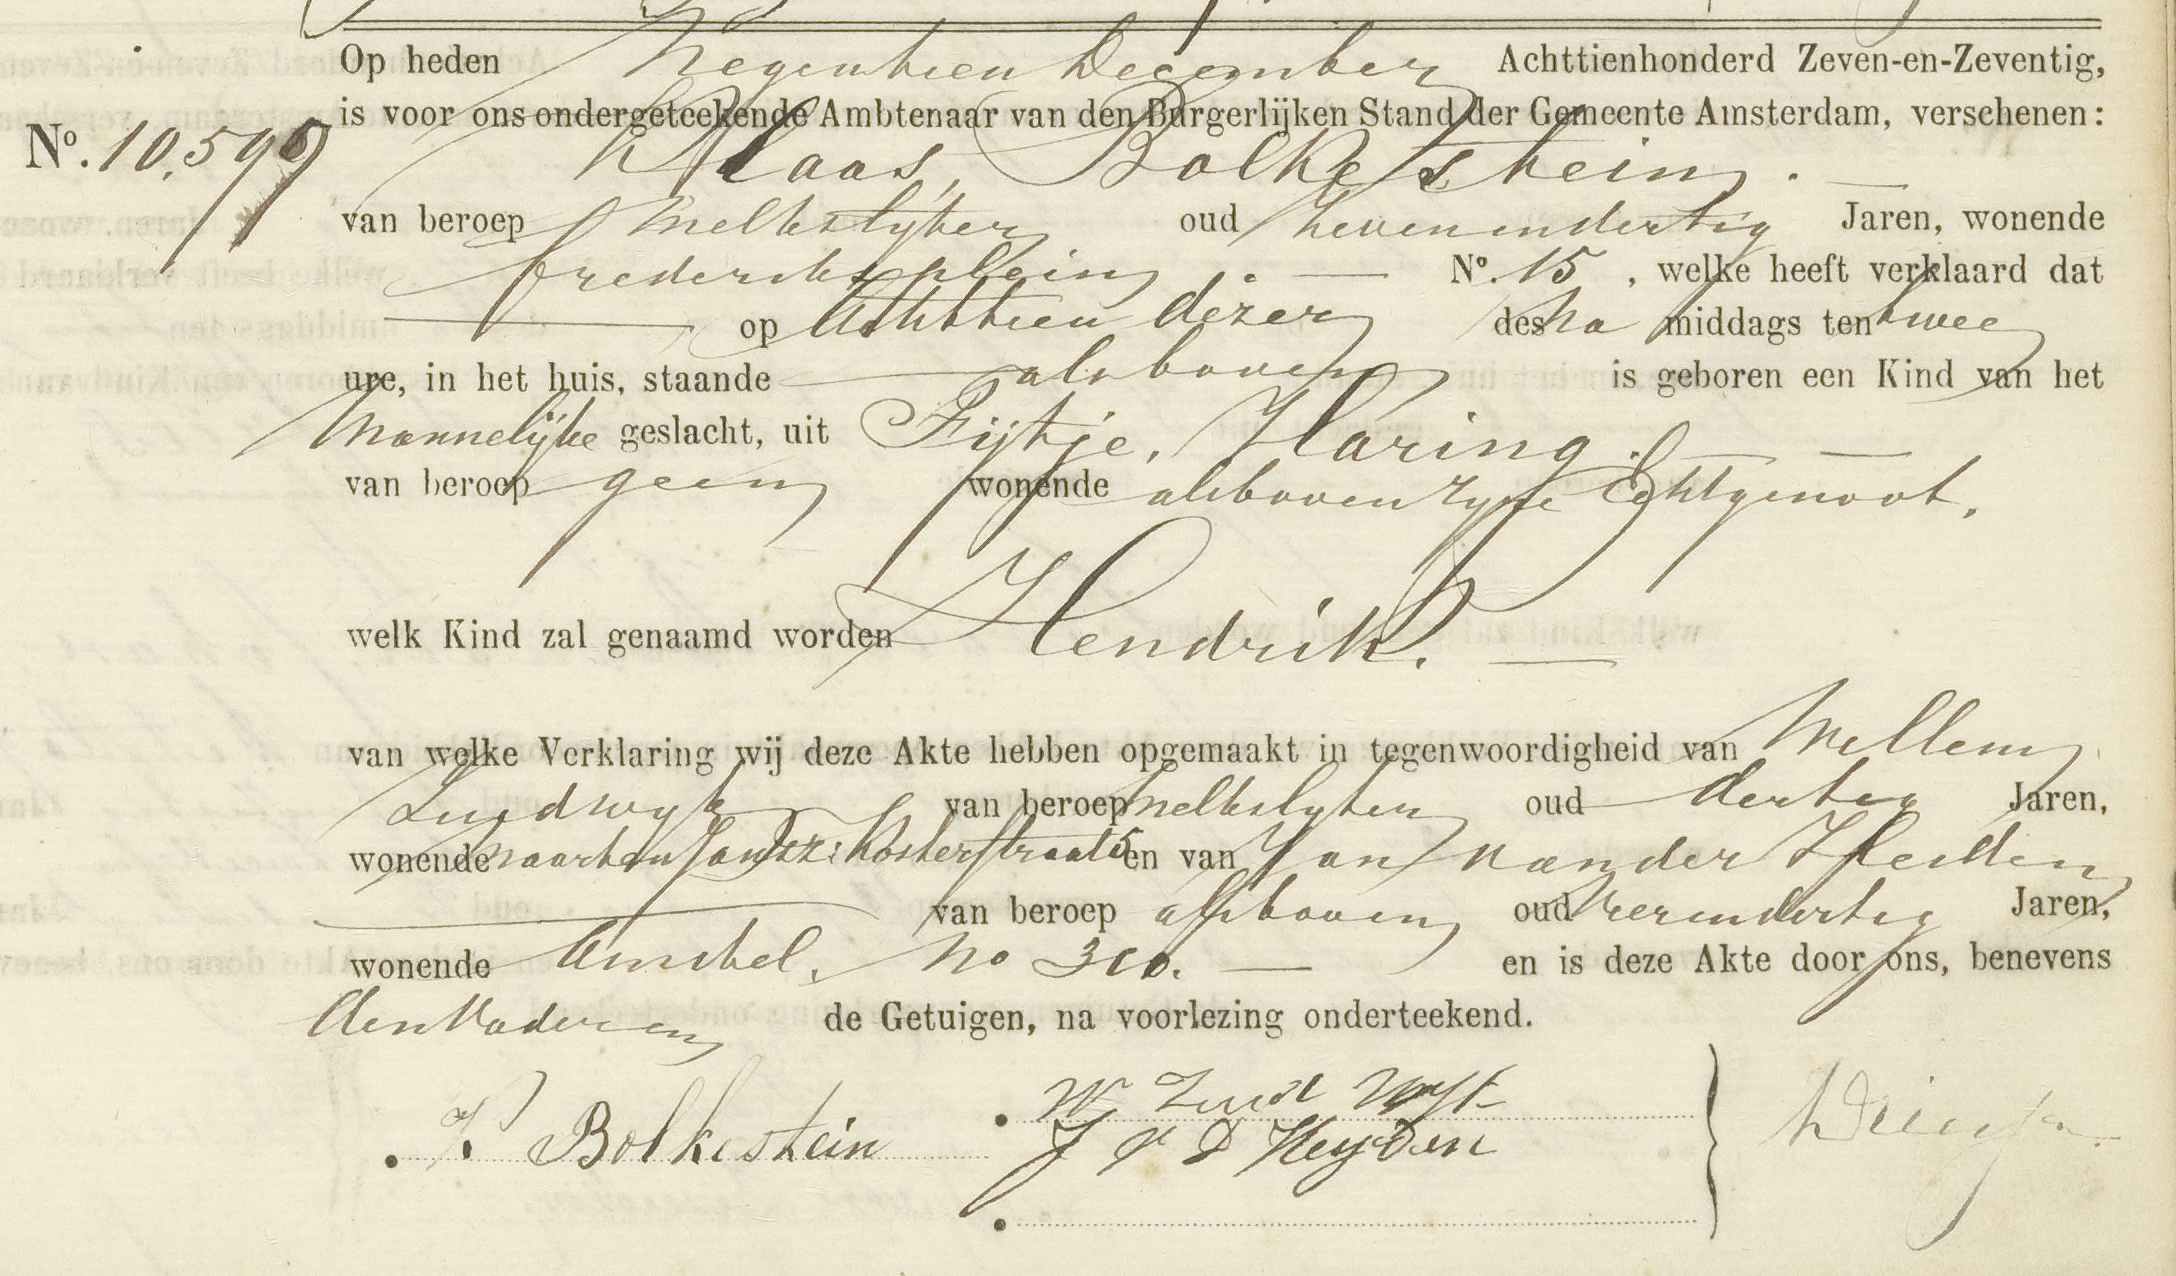 Op heden Negentien December Achttienhonderd Zeven-en-Zeventig,
is voor ons ondergeteekende Ambtenaar van den Burgerlijken Stand der Gemeente Amsterdam, verschenen:
No. 10,599 Klaas, Bolkestein.
van beroep melkslijter oud zevenendertig Jaren, wonende
Frederiksplein No. 15, welke heeft verklaard dat
op Achttien dezer des na middags ten twee
ure, in het huis, staande alsboven is geboren een Kind van het
Mannelijke geslacht, uit Fijtje, Haring.
van beroep geen wonende alsboven zyne Echtgenoot.
welk Kind zal genaamd worden Hendrik.
van welke Verklaring wij deze Akte hebben opgemaakt in tegenwoordigheid van Willem
Zuidwyk van beroep melkslyter oud dertig Jaren,
wonende Maarten Jansz: Kosterstraat 5 en van Jan van der Heiden
van beroep alsboven oud vierendertig Jaren,
wonende Amstel. No 300. en is deze Akte door ons, benevens
den Vader en de Getuigen, na voorlezing onderteekend.
K Bolkestein
W Zuid Wyk
J v D Heyden